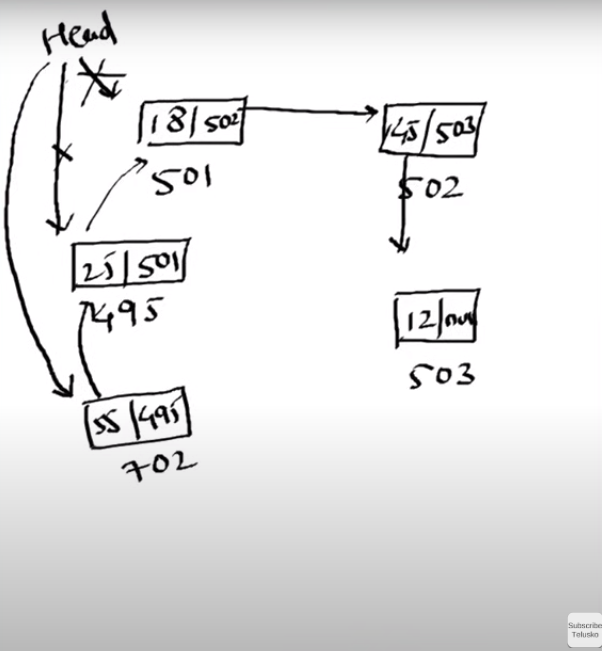 Head
18 | 502
501
45 / 503
502
25 | 501
495
12 | null
503
55 | 495
702
Subscribe
Telusko